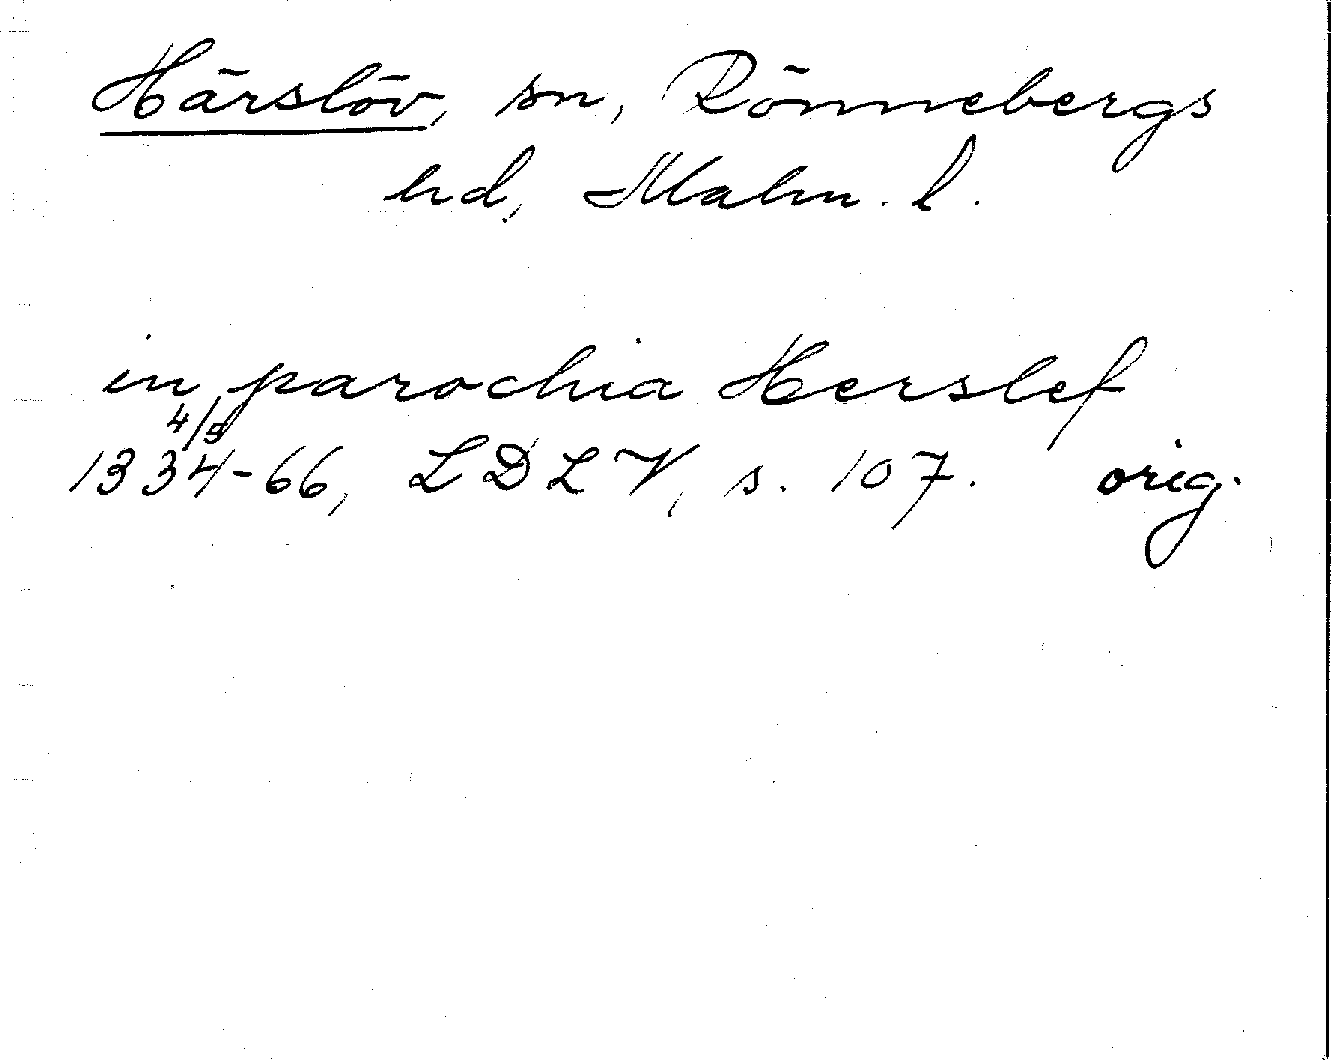 Härslöv, sn, Rönnebergs
hd, Malm. l.
in parochia Herslef
4/5
1334-66, LDLV, s. 107. orig.